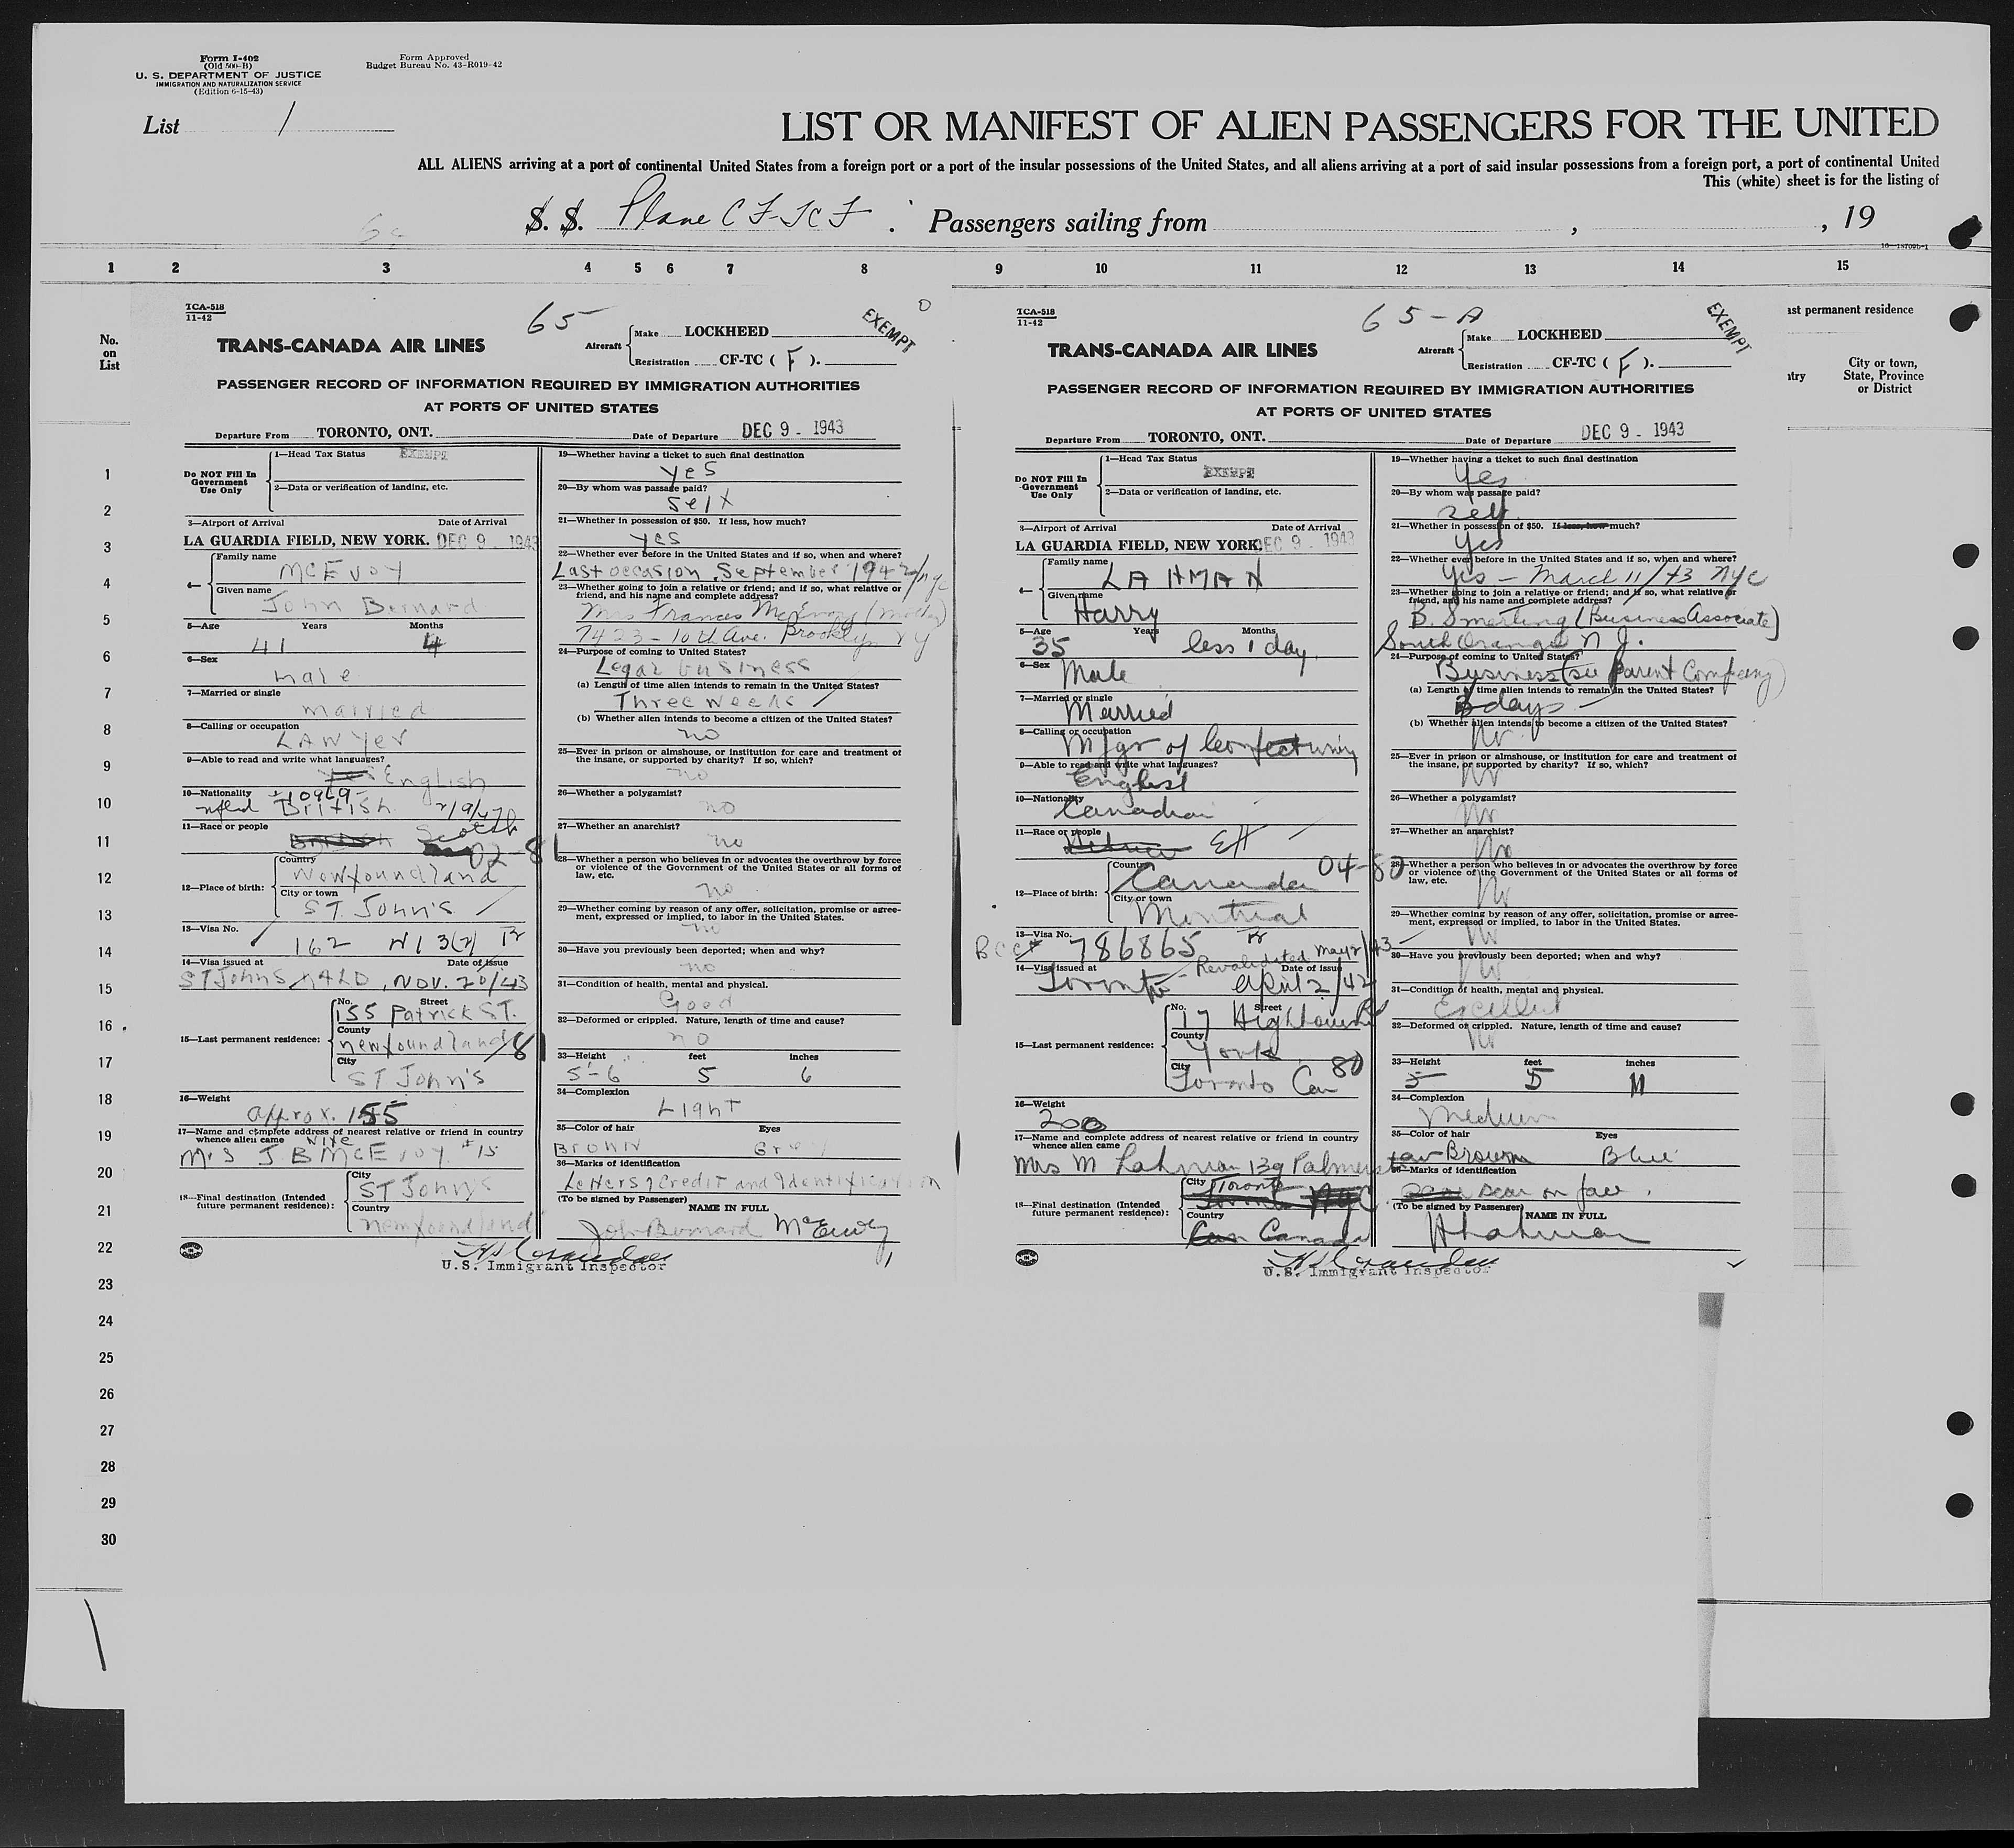 Form I-402
(Old 500-B)
U. S. DEPARTMENT OF JUSTICE
IMMIGRATION AND NATURALIZATION SERVICE
(Edition 6-15-43)
Form Approved
Budget Bureau No. 43-R019-42
List 1
LIST OR MANIFEST OF ALIEN PASSENGERS FOR THE UNITED
ALL ALIENS arriving at a port of continental United States from a foreign port or a port of the insular possessions of the United States, and all aliens arriving at a port of said insular possessions from a foreign port, a port of continental United
This (white) sheet is for the listing of
S. S. Plane CF-TCF Passengers sailing from , , 19
1 2 3 4 5 6 7 8 9 10 11 12 13 14 15
No.
on
List
1
2
3
4
5
6
7
8
9
10
11
12
13
14
15
16
17
18
19
20
21
22
23
24
25
26
27
28
29
30
TCA-518
11-42
65
EXEMPT
TRANS-CANADA AIR LINES
Aircraft
Make LOCKHEED
Registration CF-TC ( F ).
PASSENGER RECORD OF INFORMATION REQUIRED BY IMMIGRATION AUTHORITIES
AT PORTS OF UNITED STATES
Departure From TORONTO, ONT. Date of Departure DEC 9 - 1943
Do NOT Fill In
Government
Use Only
1—Head Tax Status EXEMPT
2—Data or verification of landing, etc.
3—Airport of Arrival Date of Arrival
LA GUARDIA FIELD, NEW YORK. DEC 9 - 1943
4—
Family name
McEvoy
Given name
John Bernard
5—Age Years Months
41 4
6—Sex
male
7—Married or single
married
8—Calling or occupation
LAWYER
9—Able to read and write what languages?
English
10—Nationality
nfld British
11—Race or people
Scotch
02-81
12—Place of birth:
Country
Newfoundland
City or town
ST. John's
13—Visa No.
162
14—Visa issued at Date of issue
ST Johns NFLD, Nov. 20/43
15—Last permanent residence:
No. Street
155 Patrick ST.
County
newfoundland 81
City
ST John's
16—Weight
approx. 155
17—Name and complete address of nearest relative or friend in country
whence alien came wife
Mrs J B McEvoy #15
18—Final destination (Intended
future permanent residence):
City
ST Johns
Country
newfoundland
19—Whether having a ticket to such final destination
yes
20—By whom was passage paid?
Self
21—Whether in possession of $50. If less, how much?
yes
22—Whether ever before in the United States and if so, when and where?
Last occasion September 1942/nyc
23—Whether going to join a relative or friend; and if so, what relative or
friend, and his name and complete address?
Mrs Frances McEvoy (mother)
7423 - 10th Ave. Brooklyn NY
24—Purpose of coming to United States?
Legal business
(a) Length of time alien intends to remain in the United States?
Three weeks
(b) Whether alien intends to become a citizen of the United States?
no
25—Ever in prison or almshouse, or institution for care and treatment of
the insane, or supported by charity? If so, which?
no
26—Whether a polygamist?
no
27—Whether an anarchist?
no
28—Whether a person who believes in or advocates the overthrow by force
or violence of the Government of the United States or all forms of
law, etc.
no
29—Whether coming by reason of any offer, solicitation, promise or agree-
ment, expressed or implied, to labor in the United States.
no
30—Have you previously been deported; when and why?
no
31—Condition of health, mental and physical.
Good
32—Deformed or crippled. Nature, length of time and cause?
no
33—Height feet inches
5-6 5 6
34—Complexion
Light
35—Color of hair Eyes
Brown Grey
36—Marks of identification
Letters of Credit and Identification
(To be signed by Passenger) NAME IN FULL
John Bernard McEvoy
U.S. Immigrant Inspector
TCA-518
11-42
65-A
EXEMPT
TRANS-CANADA AIR LINES
Aircraft
Make LOCKHEED
Registration CF-TC ( F ).
PASSENGER RECORD OF INFORMATION REQUIRED BY IMMIGRATION AUTHORITIES
AT PORTS OF UNITED STATES
Departure From TORONTO, ONT. Date of Departure DEC 9 - 1943
Do NOT Fill In
Government
Use Only
1—Head Tax Status
EXEMPT
2—Data or verification of landing, etc.
3—Airport of Arrival Date of Arrival
LA GUARDIA FIELD, NEW YORK. DEC 9 - 1943
4—
Family name
LAHMAN
Given name
Harry
5—Age Years Months
35 less 1 day
6—Sex
Male
7—Married or single
Married
8—Calling or occupation
Mfgr of
9—Able to read and write what languages?
English
10—Nationality
Canadian
11—Race or people
Hebrew
12—Place of birth:
Country
Canada 04-80
City or town
Montreal
13—Visa No.
786865
Revalidated May 2/43
14—Visa issued at Date of issue
Toronto April 2/42
15—Last permanent residence:
No. Street
17 Highbourne Rd
County
York
City 80
Toronto Can
16—Weight
200
17—Name and complete address of nearest relative or friend in country
whence alien came
Mrs M Lahman 139 Palmerston
18—Final destination (Intended
future permanent residence):
City
Toronto NYC
Country
Can Canada
19—Whether having a ticket to such final destination
Yes
20—By whom was passage paid?
Self
21—Whether in possession of $50. If less, how much?
Yes
22—Whether ever before in the United States and if so, when and where?
Yes - March 11/43 NYC
23—Whether going to join a relative or friend; and if so, what relative or
friend, and his name and complete address?
B. Smerling (Business Associate)
South Orange N J.
24—Purpose of coming to United States?
Business (see Parent Company)
(a) Length of time alien intends to remain in the United States?
3 days
(b) Whether alien intends to become a citizen of the United States?
No
25—Ever in prison or almshouse, or institution for care and treatment of
the insane, or supported by charity? If so, which?
No
26—Whether a polygamist?
No
27—Whether an anarchist?
No
28—Whether a person who believes in or advocates the overthrow by force
or violence of the Government of the United States or all forms of
law, etc.
No
29—Whether coming by reason of any offer, solicitation, promise or agree-
ment, expressed or implied, to labor in the United States.
No
30—Have you previously been deported; when and why?
No
31—Condition of health, mental and physical.
Excellent
32—Deformed or crippled. Nature, length of time and cause?
No
33—Height feet inches
5 5 11
34—Complexion
Medium
35—Color of hair Eyes
Brown Blue
36—Marks of identification
scar on face
(To be signed by Passenger) NAME IN FULL
H Lahman
U.S. Immigrant Inspector
ast permanent residence
ntry
City or town,
State, Province
or District